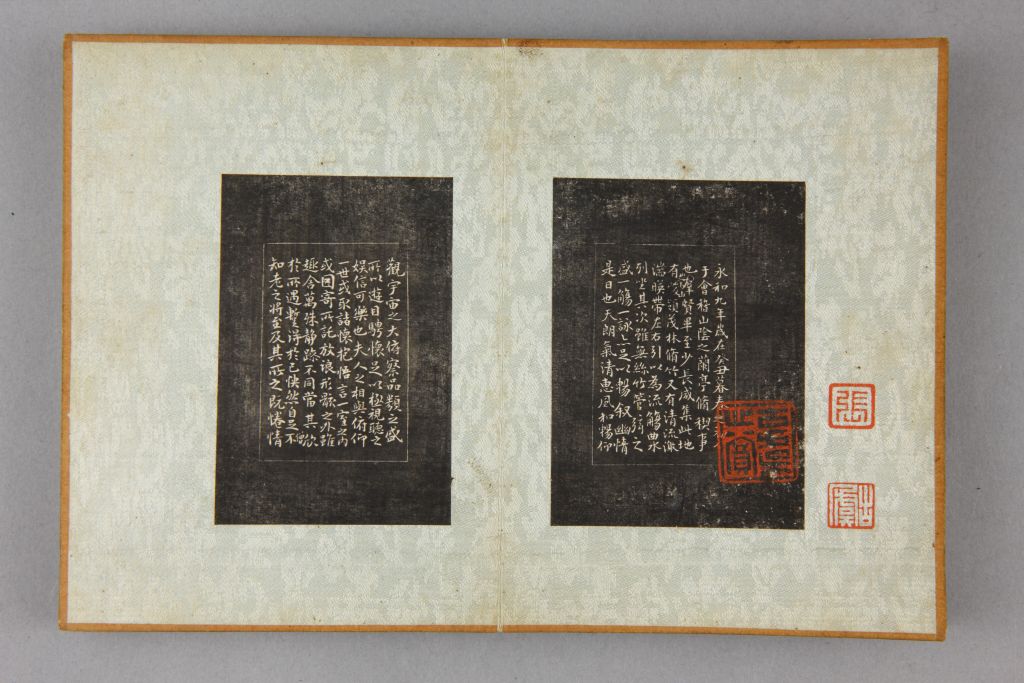 永和九年歲在癸丑暮春之初
于會稽山陰之蘭亭脩禊事
也群賢畢至少長咸集此地
有崇山峻領茂林脩竹又有清流激
湍暎帶左右引以為流觴曲水
列坐其次雖無絲竹管弦之
盛一觴一詠亦足以暢叙幽情
是日也天朗氣清惠風和暢仰
張
觀宇宙之大俯察品類之盛
所以遊目騁懷足以極視聽之
娛信可樂也夫人之相與俯仰
一世或取諸懷抱悟言一室之內
或因寄所託放浪形骸之外雖
趣舍萬殊静躁不同當其欣
於所遇暫得於己快然自足不
知老之將至及其所之既惓情